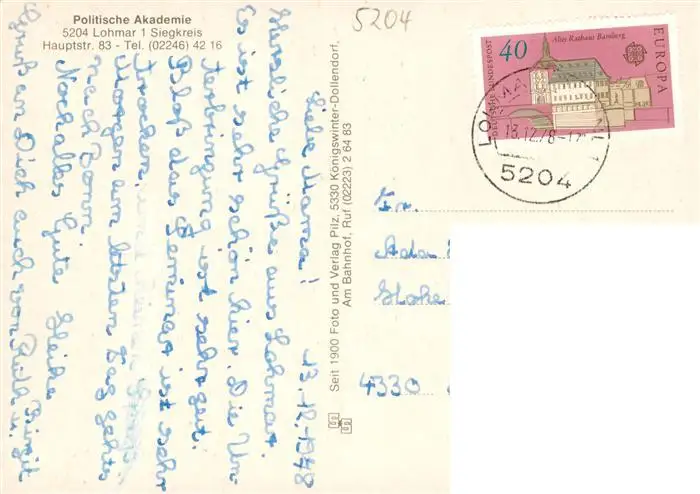 Politische Akademie
5204 Lohmar 1 Siegkreis
Hauptstr. 83 - Tel. (02246) 42 16
5204
13.12.1978
Liebe Mama!
Herzliche Grüße aus Lohmar.
Es ist sehr schön hier. Die Un-
terbringung ist sehr gut.
Bloß das Seminar ist sehr
trocken.
Morgen am letzten Tag gehts
nach Bonn.
Noch alles Gute Heike
Gruß an Dich auch von Ruth u. Birgit
Seit 1900 Foto und Verlag Pilz, 5330 Königswinter-Dollendorf,
Am Bahnhof, Ruf (02223) 2 64 83
DEUTSCHE BUNDESPOST
40
Altes Rathaus Bamberg
EUROPA
18.12.78
5204
Fr.
Ada
Hohe
4330